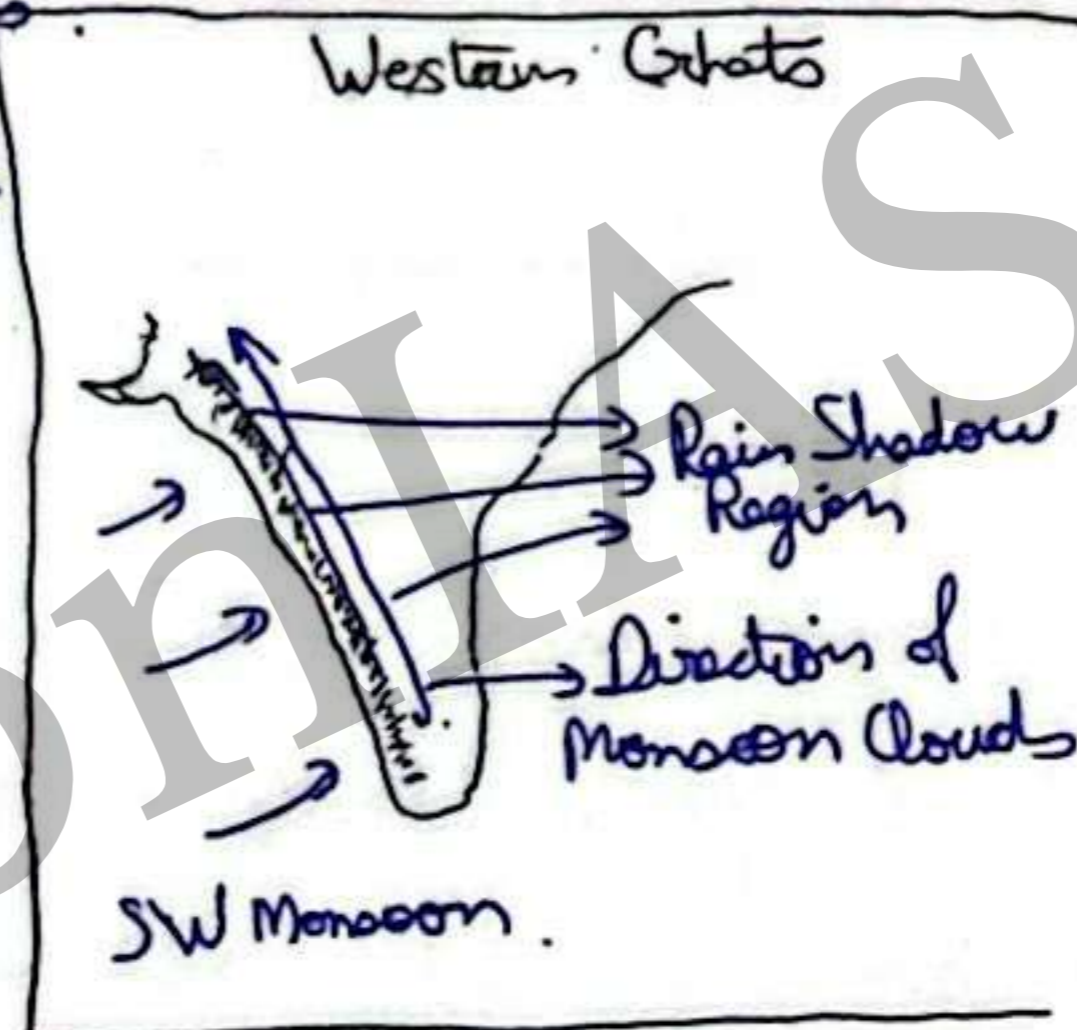 Western Ghats
Rain Shadow
Region
Direction of
Monsoon Clouds
SW Monsoon.
onIAS